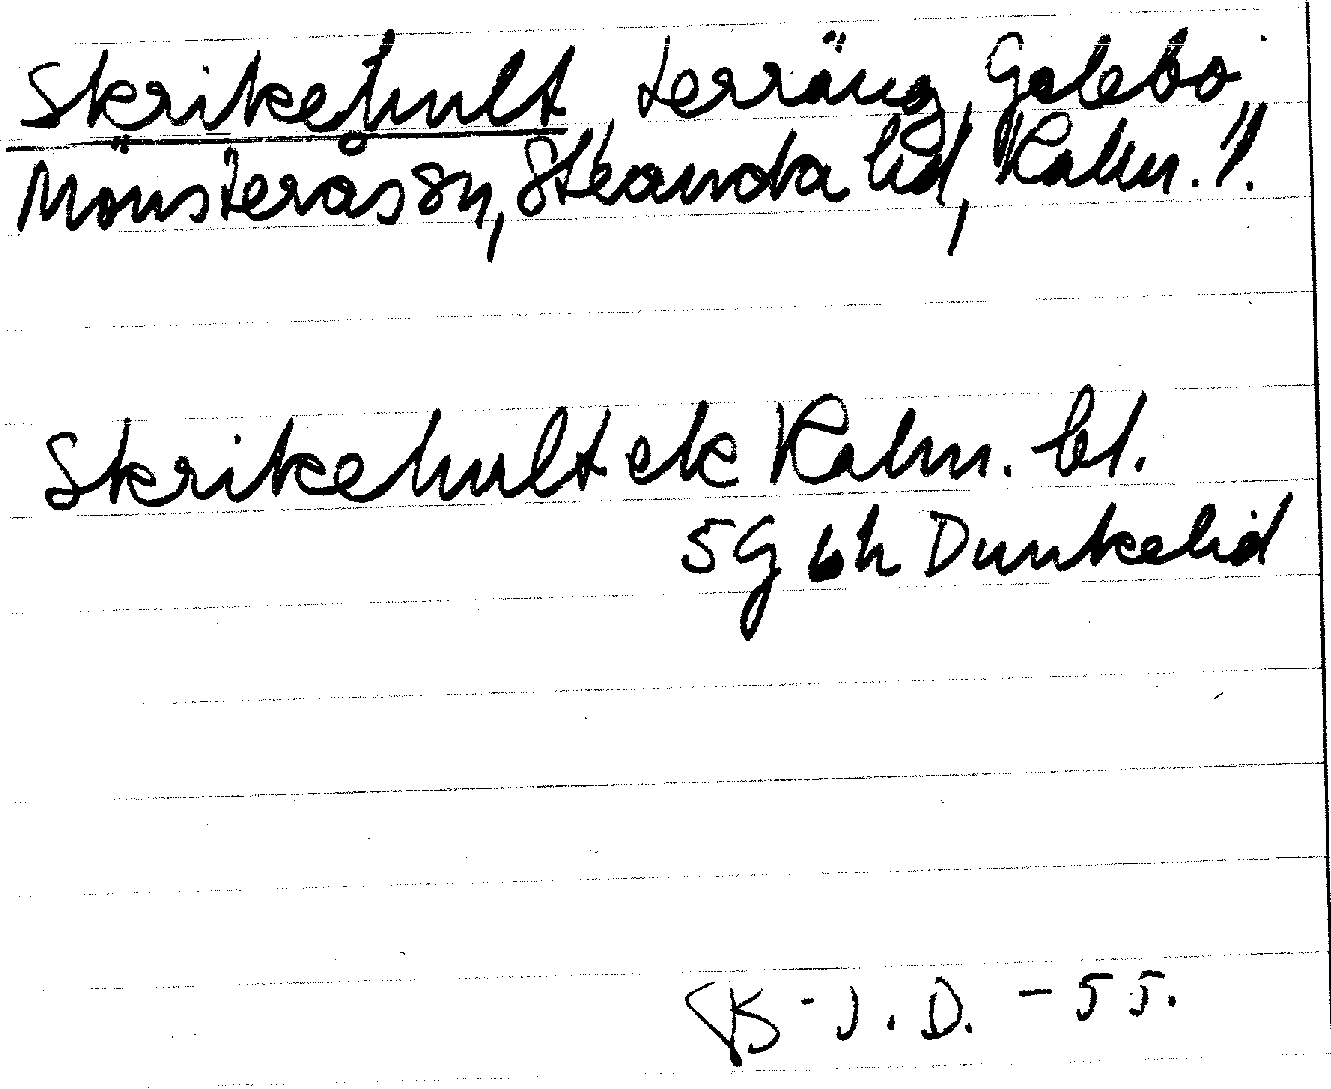 Skrikehult, terräng, Golebo,
Mönsterås sn, Stranda hd, Kalm. l.
Skrikehult ek Kalm. bl.
5G 6h Dunkelid
-J.D. - 55.